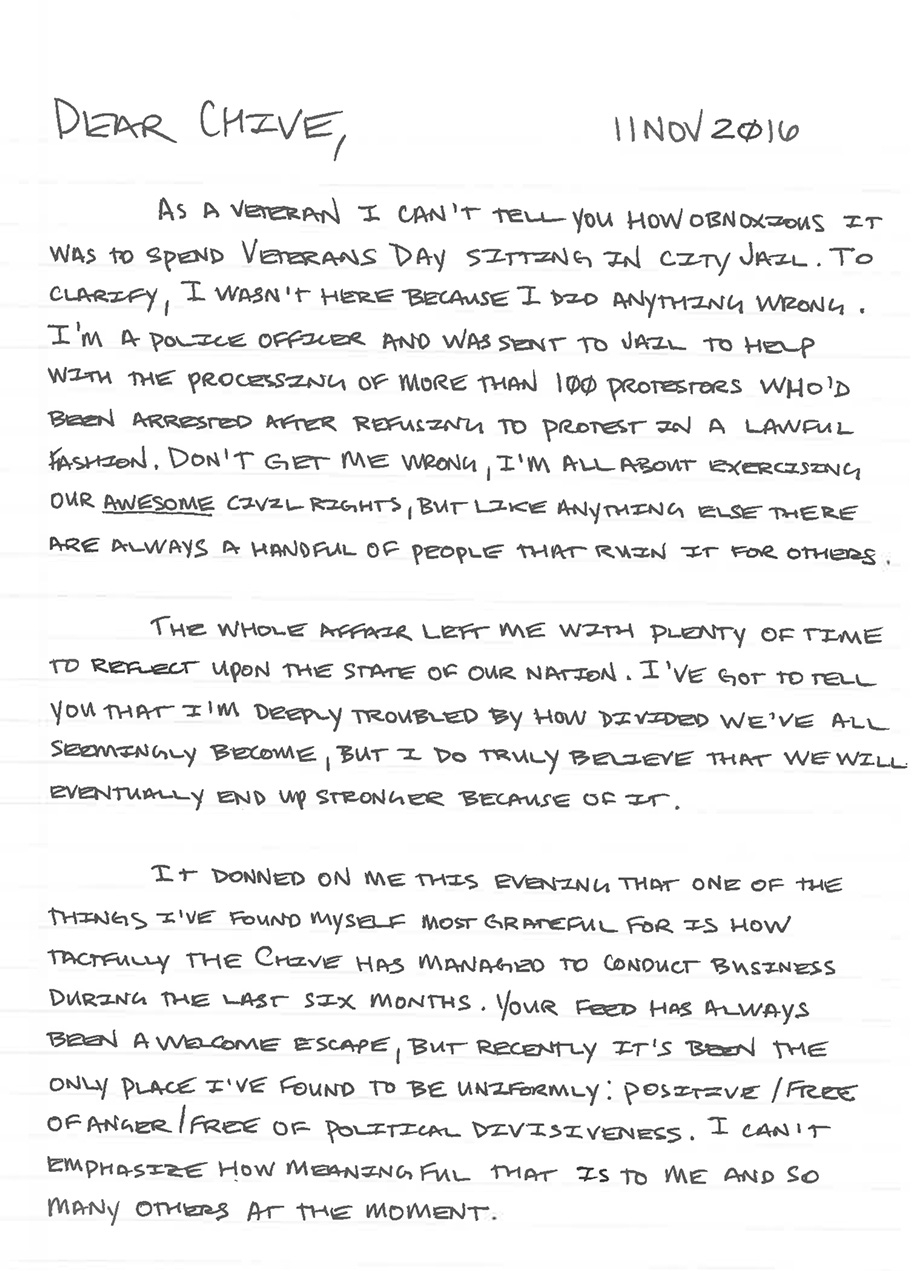 DEAR CHIVE,
11 NOV 2016
AS A VETERAN I CAN'T TELL YOU HOW OBNOXIOUS IT
WAS TO SPEND VETERANS DAY SITTING IN CITY JAIL. TO
CLARIFY, I WASN'T HERE BECAUSE I DID ANYTHING WRONG.
I'M A POLICE OFFICER AND WAS SENT TO JAIL TO HELP
WITH THE PROCESSING OF MORE THAN 100 PROTESTORS WHO'D
BEEN ARRESTED AFTER REFUSING TO PROTEST IN A LAWFUL
FASHION. DON'T GET ME WRONG, I'M ALL ABOUT EXERCISING
OUR AWESOME CIVIL RIGHTS, BUT LIKE ANYTHING ELSE THERE
ARE ALWAYS A HANDFUL OF PEOPLE THAT RUIN IT FOR OTHERS.
THE WHOLE AFFAIR LEFT ME WITH PLENTY OF TIME
TO REFLECT UPON THE STATE OF OUR NATION. I'VE GOT TO TELL
YOU THAT I'M DEEPLY TROUBLED BY HOW DIVIDED WE'VE ALL
SEEMINGLY BECOME, BUT I DO TRULY BELIEVE THAT WE WILL
EVENTUALLY END UP STRONGER BECAUSE OF IT.
IT DONNED ON ME THIS EVENING THAT ONE OF THE
THINGS I'VE FOUND MYSELF MOST GRATEFUL FOR IS HOW
TACTFULLY THE CHIVE HAS MANAGED TO CONDUCT BUSINESS
DURING THE LAST SIX MONTHS. YOUR FEED HAS ALWAYS
BEEN A WELCOME ESCAPE, BUT RECENTLY IT'S BEEN THE
ONLY PLACE I'VE FOUND TO BE UNIFORMLY: POSITIVE/FREE
OF ANGER/FREE OF POLITICAL DIVISIVENESS. I CAN'T
EMPHASIZE HOW MEANINGFUL THAT IS TO ME AND SO
MANY OTHERS AT THE MOMENT.